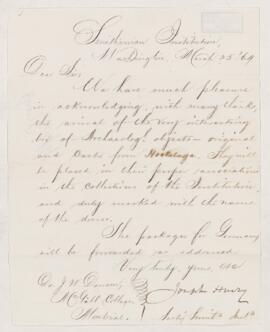 Smithsonian Institution,
Washington, March 25 '64
Dear Sir,
We have much pleasure
in acknowledging, with many thanks,
the arrival of the very interesting
box of Archaeolog. objects original
and Casts from Hochelaga. They will
be placed in their proper associations
in the Collections of the Institution,
and duly marked with the name
of the donor.
The packages for Germany
will be forwarded as addressed.
Very truly, yours, &c
Joseph Henry
Dr. J. W. Dawson,
McGill College
Montreal.
Secty Smith. Inst.